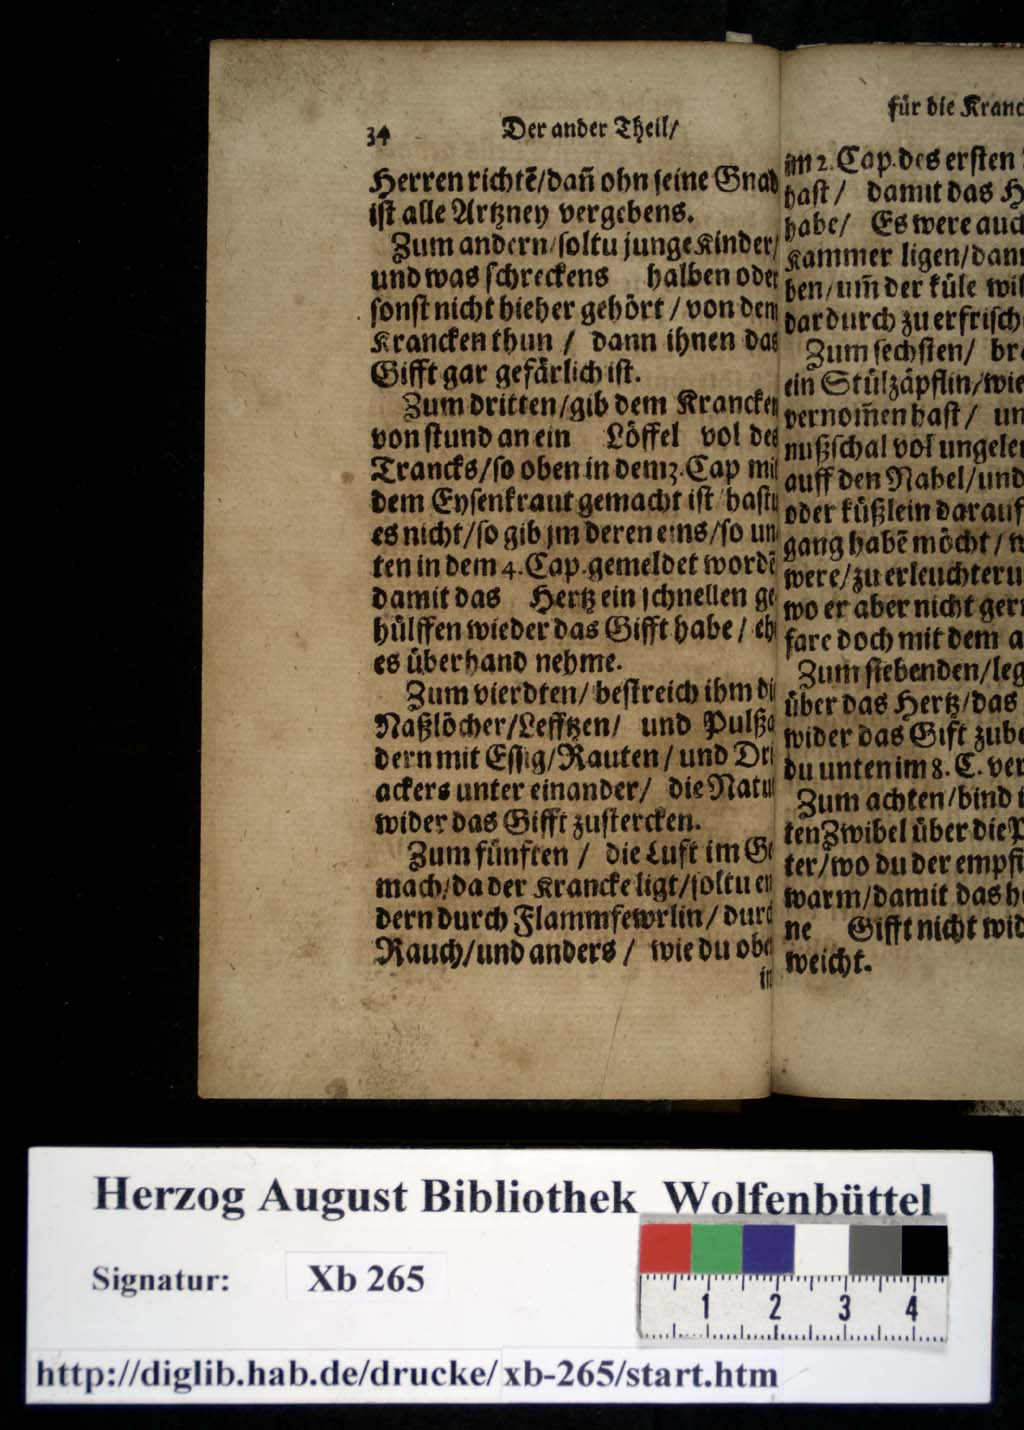 34 Der ander Theil/
Herren richtẽ/dañ ohn seine Gnad
ist alle Artzney vergebens.
Zum andern/soltu junge Kinder/
und was schreckens halben oder
sonst nicht hieher gehört/von dem
Krancken thun / dann ihnen das
Gifft gar gefärlich ist.
Zum dritten/gib dem Krancken
von stund an ein Löffel vol des
Trancks/so oben in dem 13. Cap mit
dem Eysenkraut gemacht ist/hastu
es nicht/so gib jm deren eins/so un
ten in dem 4. Cap. gemeldet wordẽ
damit das Hertz ein schnellen ge
hülffen wieder das Gifft habe/ eh
es überhand nehme.
Zum vierdten/bestreich ihm di
Naßlöcher/Lefftzen/ und Pulßa
dern mit Essig/Rauten/und Dri
ackers unter einander/ die Natur
wider das Gifft zustercken.
Zum fünften / die Luft im Ge
mach/da der Krancke ligt/soltu en
dern durch Flammfewrlin/durch
Rauch/und anders / wie du oben
in
für die Kranc
im 2. Cap. des ersten
hast/ damit das H
habe/ Es were auch
Kammer ligen/dann
ben/um̃ der küle wil
dardurch zu erfrisch
Zum sechsten/ br
ein Stülzäpflin/wie
vernom̃en hast/ un
nußschal vol ungele
auff den Nabel/und
oder küßlein darauf
gang habẽ möcht/ n
were/zu erleuchteru
wo er aber nicht gern
fare doch mit dem a
Zum siebenden/leg
über das Hertz/das
wider das Gift zube
du unten im 8. C. ver
Zum achten/bind i
ten Zwibel über die P
ter/wo du der empfi
warm/damit das h
ne Gifft nicht wid
weicht.
Herzog August Bibliothek Wolfenbüttel
Signatur: Xb 265
1 2 3 4
http://diglib.hab.de/drucke/xb-265/start.htm